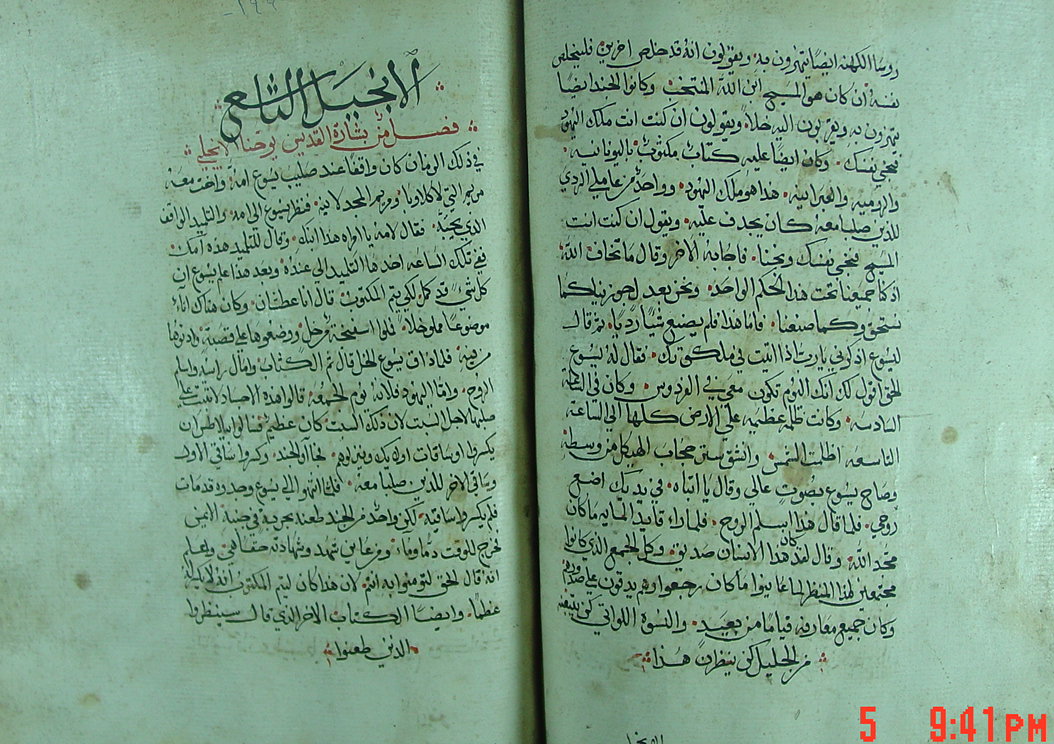 روسا الكهنه ايضًا يتهزون به ويقولون انه قد خلص اخرين فليخلص
نفسه ان كان هو المسيح ابن الله المنتخب وكانوا الجند ايضًا
يتهزون به ويقربون اليه خلاً ويقولون ان كنت انت ملك اليهود
فنجي نفسك وكان ايضًا عليه كتاب مكتوب باليونانيه
والروميه والعبرانيه هذا هو ملك اليهود وواحد من عاملي الردي
الذين صلبا معه كان يجدف عليه ويقول ان كنت انت
المسيح فنجي نفسك ونجنا فاجابه الاخر وقال ما تخاف الله
اذ كنا جميعنا تحت هذا الحكم الواحد ونحن بعدل جوزينا كما
نستحق وكما صنعنا فاما هذا فلم يصنع شيًا رديًا ثم قال
ليسوع اذكرني يا رب اذا اتيت في ملكوتك فقال له يسوع
الحق اقول لك انك اليوم تكون معي في الفردوس وكان في الساعه
السادسه وكانت ظلمه عظيمه على الارض كلها الى الساعه
التاسعه اظلمت الشمس وانشق ستر حجاب الهيكل من وسطه
وصاح يسوع بصوت عالي وقال يا ابتاه في يديك اضع
روحي فلما قال هذا اسلم الروح فلما راء قايد المايه ما كان
مجد الله وقال لقد كان هذا الانسان صديق وكل الجمع الذي كانوا
مجتمعين لهذا المنظر لما عاينوا ما كان رجعوا وهم يدقون على صدورهم
وكان جميع معارفه قيامًا من بعيد والنسوة اللواتي كن يتبعنه
من الجليل كن ينظرن هذا
الانجيل التاسع
فصل من بشارة القديس يوحنا الانجيلي
في ذلك الزمان كان واقفًا عند صليب يسوع امه واخت امه
مريم التي لاكلاوبا ومريم المجدلانيه فنظر يسوع الى امه والتلميد الواقف
الذي يحبه فقال لامه يا امراه هذا ابنك وقال للتلميد هذه امك
فمن تلك الساعه اخدها التلميد الى عنده وبعد هذا علم يسوع ان
كل شي قد كمل لكي يتم المكتوب قال انا عطشان وكان هناك اناء
موضوعًا مملو خلاً فملوا اسفنجة من خل ووضعوها على قصبة وادنوها
من فيه فلما ذاق يسوع الخل قال تم الكتاب وامال راسه واسلم
الروح واما اليهود فلانه يوم الجمعه قالوا هذه الاجساد لا تبت على
صلبها لاجل السبت لان ذلك السبت كان عظيم فسالوا بيلاطس ان
يكسروا ساقات اوليك وينزلوهم فجاء الجند وكسروا ساقي الاول
وساقي الاخر للذين صلبا معه فلما انتهوا الى يسوع وجدوه قد مات
فلم يكسروا ساقيه لكن واحد من الجند طعنه بحربه في جنبه الايمن
فخرج للوقت دم وماء ومن عاين شهد وشهادته حقًا هي ويعلم
انه قال الحق لتومنوا به انتم لان هذا كان ليتم المكتوب انه لا يكسر له
عظمًا وايضًا الكتاب الاخر الذي قال سينظروا
الذين طعنوا
5 9:41 PM